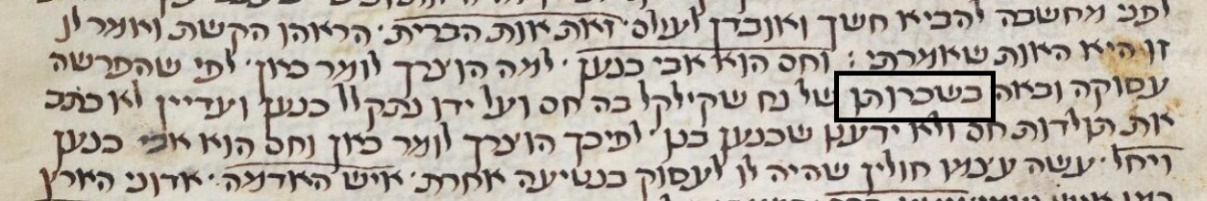 לפני מחשבה להביא חשך ואובדן לעולם · זאת אות הברית · הראהו הקשת ואמר לו
זו היא האות שאמרתי : וחם הוא אבי כנען · למה הוצרך לומר כאן · לפי שהפרשה
עסוקה ובאה בשכרותו של נח שקילקל בה חם ועל ידו נתקלל כנען ועדיין לא כתב
את תולדות חם ולא ידענו שכנען בנו · לפיכך הוצרך לומר כאן וחם הוא אבי כנען
ויחל · עשה עצמו חולין שהיה לו לעסוק בנטיעה אחרת · איש האדמה · אדוני הארץ